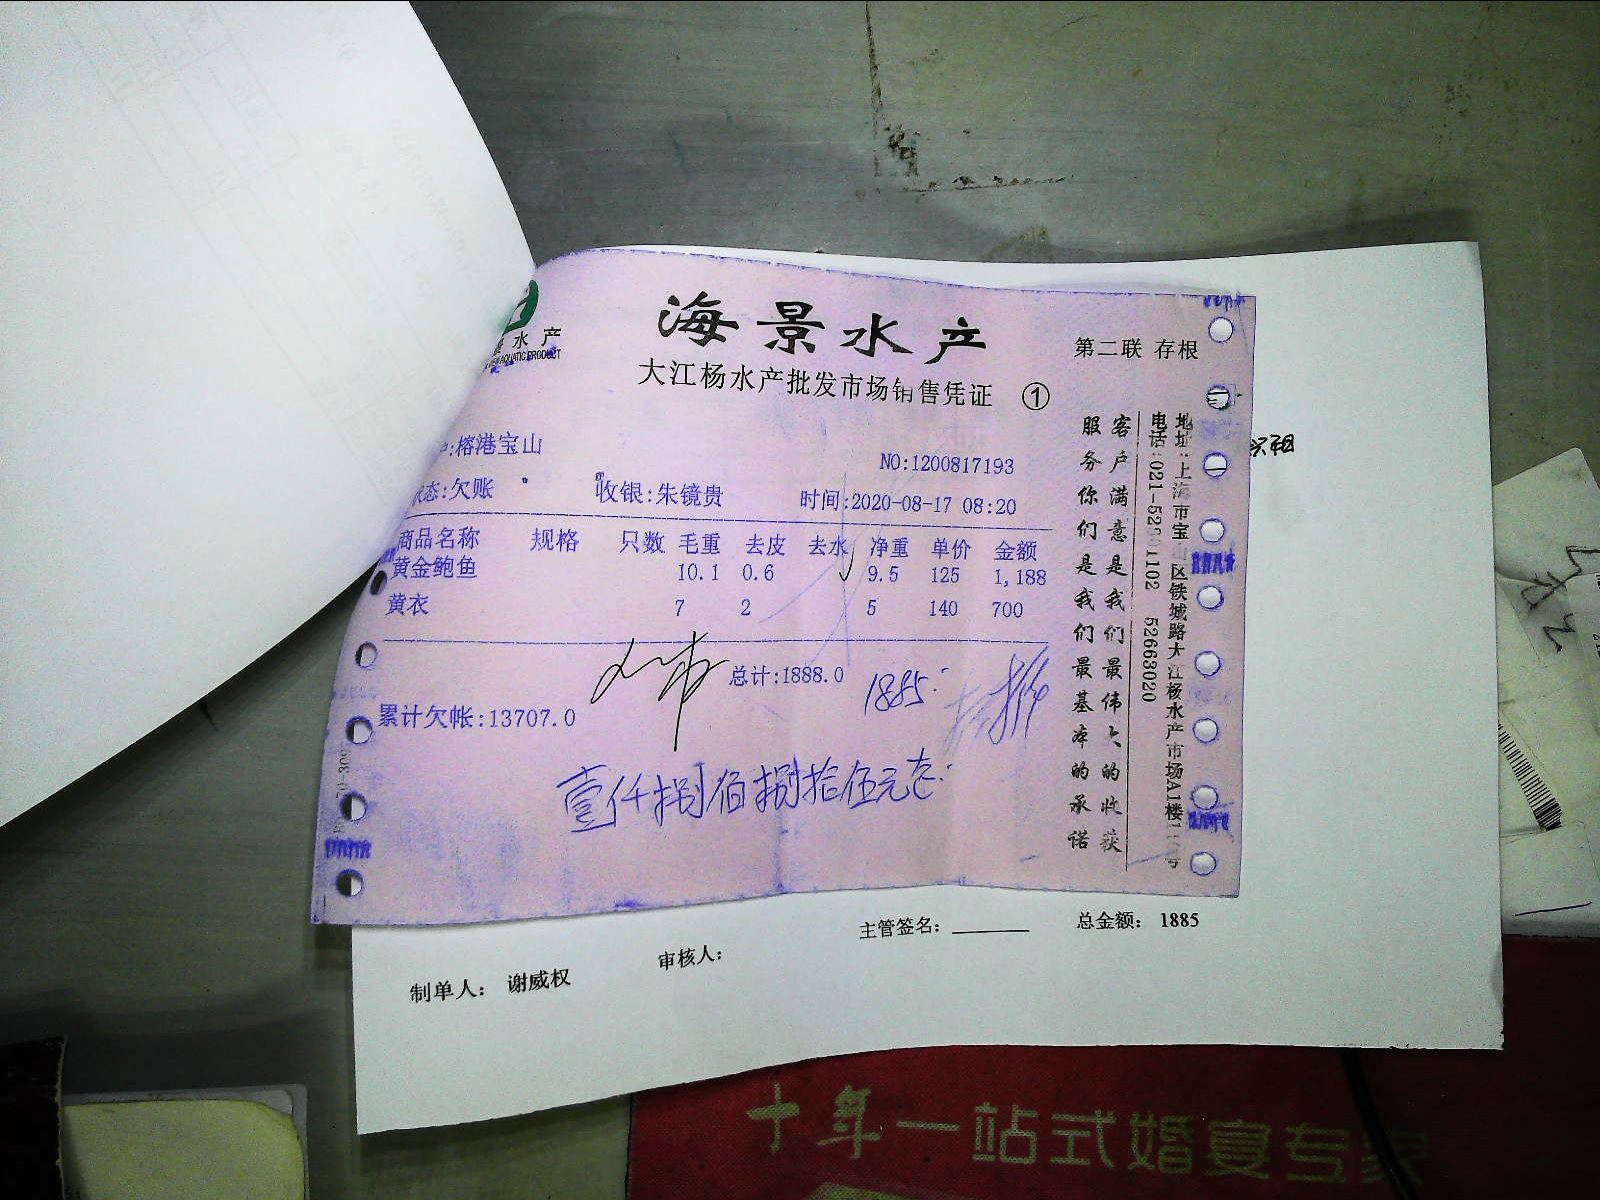 海景水产
水产
AQUATIC PRODUCT
第二联 存根
大江杨水产批发市场销售凭证 ①
:榕港宝山
NO:1200817193
状态:欠账 收银:朱镜贵 时间:2020-08-17 08:20
商品名称 规格 只数 毛重 去皮 去水 净重 单价 金额
黄金鲍鱼 10.1 0.6 9.5 125 1,188
黄衣 7 2 5 140 700
总计:1888.0
1885
累计欠帐:13707.0
壹仟捌佰捌拾伍元
客户满意是我们最伟大的收获
服务你们是我们最基本的承诺
地址:上海市宝山区铁城路大江杨水产市场A1楼
电话:021-52 1102 52663020
主管签名: 总金额: 1885
制单人: 谢威权 审核人:
十年一站式婚宴专家